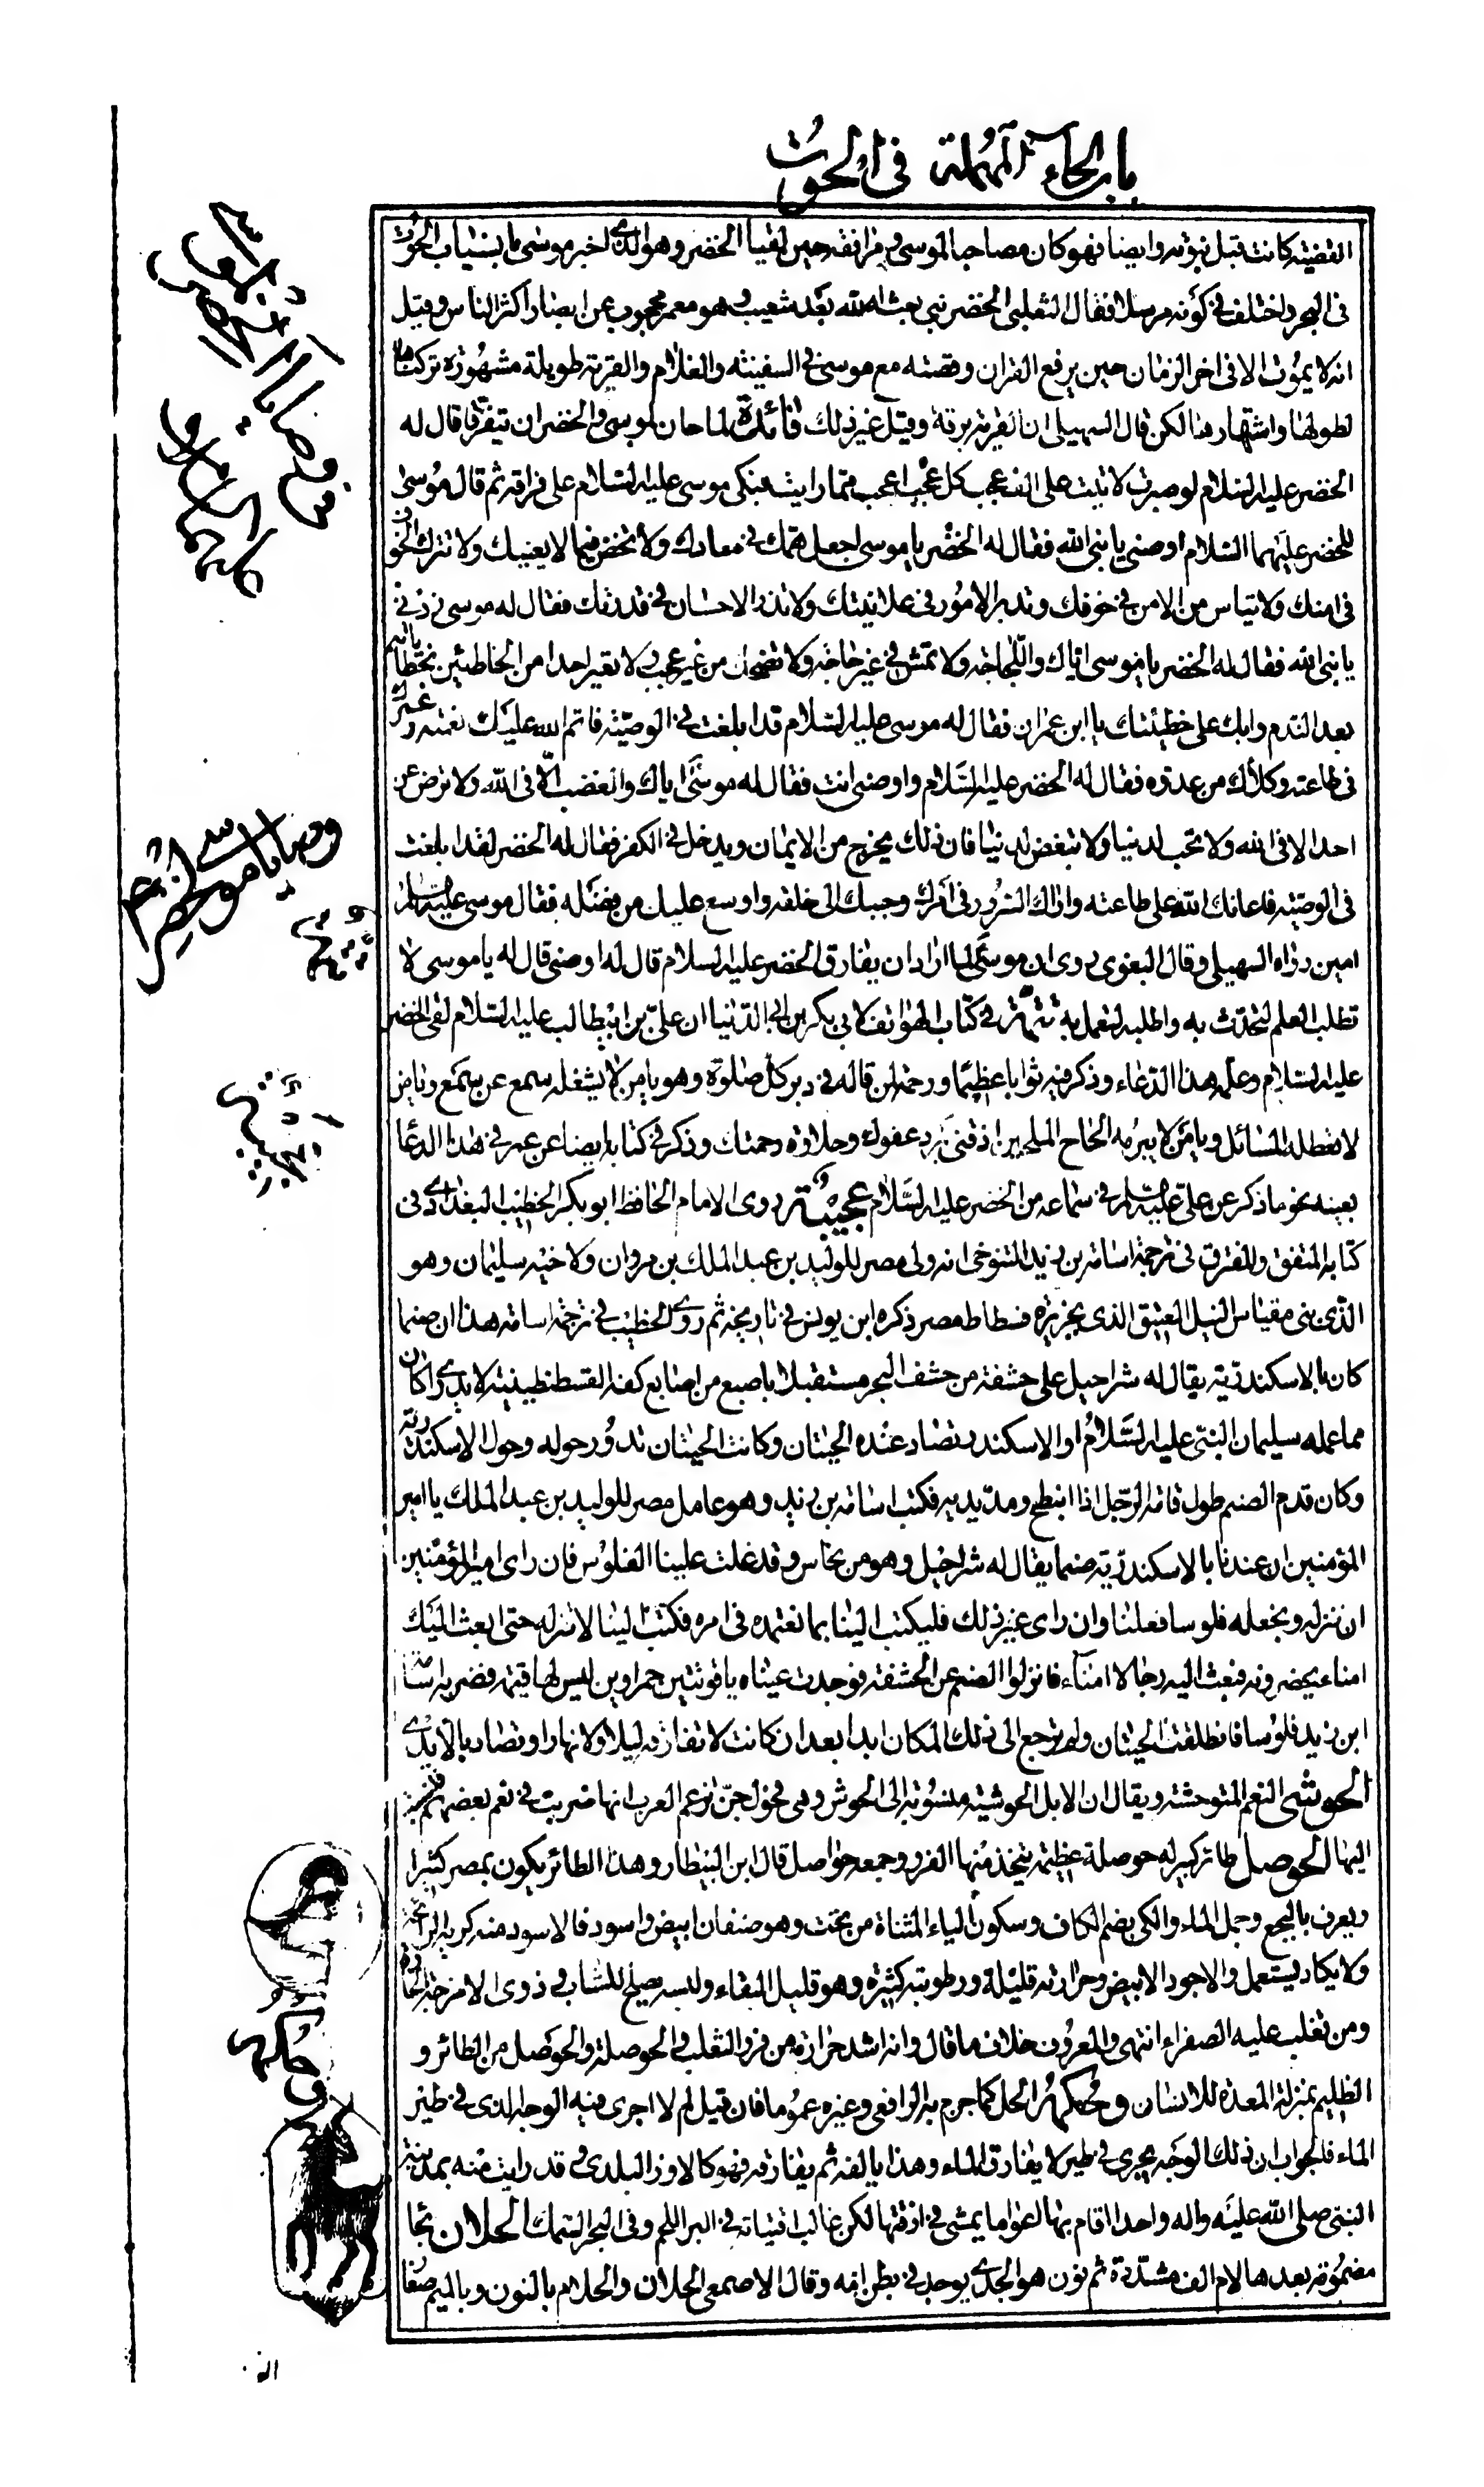 باب الحاء المهملة فى الحوت
القضيته كانت قبل نبوته وايضا فهو كان مصاحبا لموسى ومرافقه حين لقيا الخضر وهو الذى اخبر موسى بانسياب الحوت
فى البحر واختلف فى كونه مرسلا فقال الثعلبى الخضر نبى بعثه الله بعد شعيب وهو معمر محجوب عن ابصار اكثر الناس وقيل
انه لا يموت الا فى اخر الزمان حين يرفع القران وقصته مع موسى فى السفينة والغلام والقرية طويلة مشهورة تركناها
لطولها واشتهارها لكن قال السهيلى ان القرية برقة وقيل غير ذلك فائدة لما حان لموسى والخضر ان يتفرقا قال له
الخضر عليه السلام لو صبرت لاتيت على الف عجب كل عجب اعجب مما رايت فبكى موسى عليه السلام على فراقه ثم قال موسى
للخضر عليهما السلام اوصنى يا نبى الله فقال له الخضر يا موسى اجعل همك فى معادك ولا تخض فيما لا يعنيك ولا تترك الخوف
فى امنك ولا تياس من الامن فى خوفك وتدبر الامور فى علانيتك ولا تذر الاحسان فى قدرتك فقال له موسى زدنى
يا نبى الله فقال له الخضر يا موسى اياك واللجاجة ولا تمش فى غير حاجة ولا تضحك من غير عجب ولا تعير احدا من الخاطئين بخطاياهم
بعد الندم وابك على خطيئتك يا ابن عمران فقال له موسى عليه السلام قد ابلغت فى الوصية فاتم الله عليك نعمته وغمرك
فى طاعته وكلاك من عدوه فقال له الخضر عليه السلام واوصنى انت فقال له موسى اياك والغضب الا فى الله ولا ترض عن
احد الا فى الله ولا تحب لدنيا ولا تبغض لدنيا فان ذلك يخرج من الايمان ويدخل فى الكفر فقال له الخضر لقد ابلغت
فى الوصية فاعانك الله على طاعته واراك السرور فى امرك وحببك الى خلقه واوسع عليك من فضله فقال موسى عليه السلام
امين رواه السهيلى وقال البغوى روى ان موسى لما اراد ان يفارق الخضر عليه السلام قال له اوصنى قال له يا موسى لا
تطلب العلم لتحدث به واطلبه لتعمل به تتمة فى كتاب الهواتف لابى بكر بن ابى الدنيا ان على بن ابيطالب عليه السلام لقى الخضر
عليه السلام وعلمه هذا الدعاء وذكر فيه ثوابا عظيما ورحمة لمن قاله فى دبر كل صلوة وهو يا من لا يشغله سمع عن سمع ويا من
لا تغلطه المسائل ويا من لا يبرمه الحاح الملحين اذقنى برد عفوك وحلاوة رحمتك وذكر فى كتابه ايضا عن عمر فى هذا الدعا
بعينه نحو ما ذكر عن على عليه السلام فى سماعه من الخضر عليه السلام عجيبة روى الامام الحافظ ابو بكر الخطيب البغدادى فى
كتابه المتفق والمفترق فى ترجمة اسامة بن زيد التنوخى انه ولى مصر للوليد بن عبد الملك بن مروان ولاخيه سليمان وهو
الذى بنى مقياس النيل العتيق الذى بجزيرة فسطاط مصر ذكره ابن يونس فى تاريخه ثم روى الخطيب فى ترجمة اسامة هذا ان صنما
كان بالاسكندرية يقال له شراحيل على حشفة من حشف البحر مستقبلا باصبع من اصابع كفه القسطنطينية لا يدرى اكان
مما عمله سليمان النبى عليه السلام او الاسكندر تصاد عنده الحيتان وكانت الحيتان تدور حوله وحول الاسكندرية
وكان قدم الصنم طول قامة الرجل اذا انبطح ومد يديه فكتب اسامة بن زيد وهو عامل مصر للوليد بن عبد الملك يا امير
المؤمنين ان عندنا بالاسكندرية صنما يقال له شراحيل وهو من نحاس وقد غلت علينا الفلوس فان راى امير المؤمنين
ان ننزله ونجعله فلوسا فعلنا وان راى غير ذلك فليكتب الينا بما نعتمده فى امره فكتب الينا لا تنزله حتى ابعث اليك
امناء يحضرونه فبعث اليه رجالا امناء فانزلوا الصنم عن الحشفة فوجدت عيناه ياقوتتين حمراوين ليس لها قيمة فضربه اسامة
ابن زيد فلوسا فانطلقت الحيتان ولم ترجع الى ذلك المكان ابدا بعد ان كانت لا تفارقه ليلا ولا نهارا وتصاد بالايدى
الحوشى النعم المتوحشة ويقال ان الابل الحوشية منسوبة الى الحوش وهى فحول جن تزعم العرب انها ضربت فى نعم بعضهم فنسبت
اليها الحوصل طائر كبير له حوصلة عظيمة يتخذ منها الفرو وجمعه حواصل قال ابن البيطار وهذا الطائر يكون بمصر كثيرا
ويعرف بالبجع وجمل الماء والكى بضم الكاف وسكون الياء المثناة من تحت وهو صنفان ابيض واسود فالاسود منه كريه الرائحة
ولا يكاد يستعمل والاجود الابيض وحرارته قليلة ورطوبته كثيرة وهو قليل البقاء ولبسه يصلح للشباب وذوى الامزجة الحارة
ومن تغلب عليه الصفراء انتهى والمعروف خلاف ما قال وانه اشد حرارة من فرو الثعلب والحوصلة والحوصل من الطائر و
الظليم بمنزلة المعدة للانسان وحكمه الحل كما جزم به الرافعى وغيره عموما فان قيل لم لا اجرى فيه الوجه الذى فى طير
الماء فالجواب ان ذلك الوجه يجرى فى طير لا يفارق الماء وهذا يالفه ثم يفارقه فهو كالاوز البلدى وقد رايت منه بمدينة
النبى صلى الله عليه واله واحدا اقام بها اعواما يمشى فى ازقتها لكن غالب اقتياته فى البر اللحم وفى البحر السمك الحلان بحا
مضمومة بعدها لام الف مشددة ثم نون هو الجدى يوجد فى بطن امه وقال الاصمعى الحلان والحلام بالنون وبالميم صغار
وصايا موسى
وحكمه